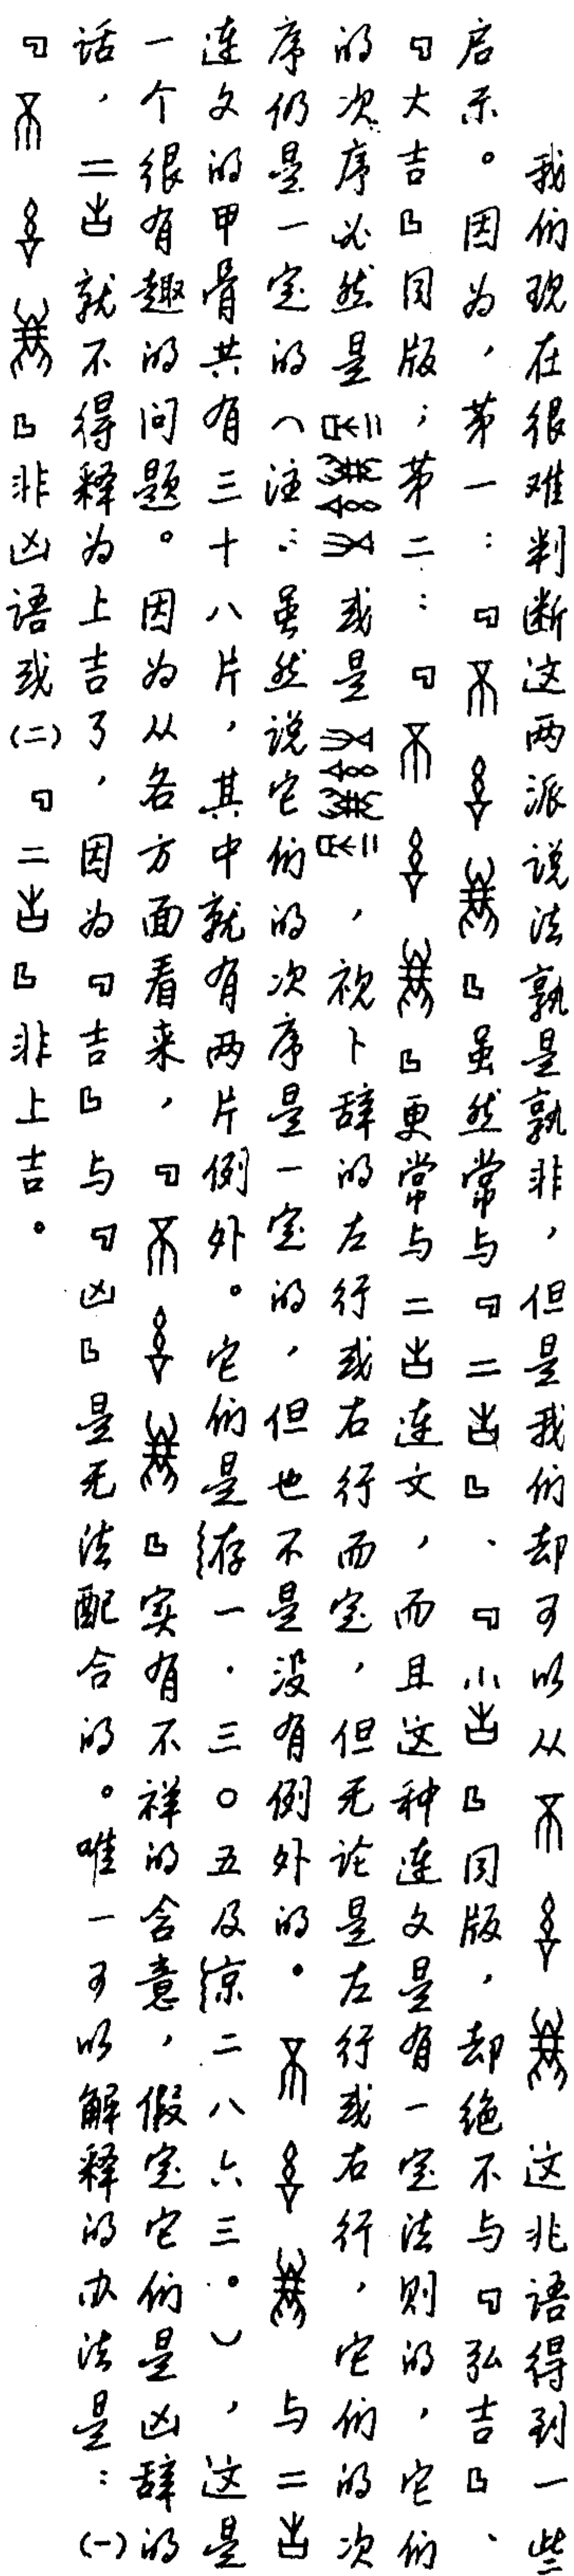 我们现在很难判断这两派说法孰是孰非，但是我们却可以从 这兆语得到一些
启示。因为，第一：「」虽然常与「二𠮷」、「小𠮷」同版，却绝不与「弘吉」、
「大吉」同版；第二：「」更常与二𠮷连文，而且这种连文是有一定法则的，它们
的次序必然是 或是 ，视卜辞的左行或右行而定，但无论是左行或右行，它们的次
序仍是一定的（注：虽然说它们的次序是一定的，但也不是没有例外的。 与二𠮷
连文的甲骨共有三十八片，其中就有两片例外。它们是存一．三〇五及京二八六三。），这是
一个很有趣的问题。因为从各方面看来，「」实有不祥的含意，假定它们是凶辞的
话，二𠮷就不得释为上吉了，因为「吉」与「凶」是无法配合的。唯一可以解释的办法是：（一）
「」非凶语或（二）「二𠮷」非上吉。